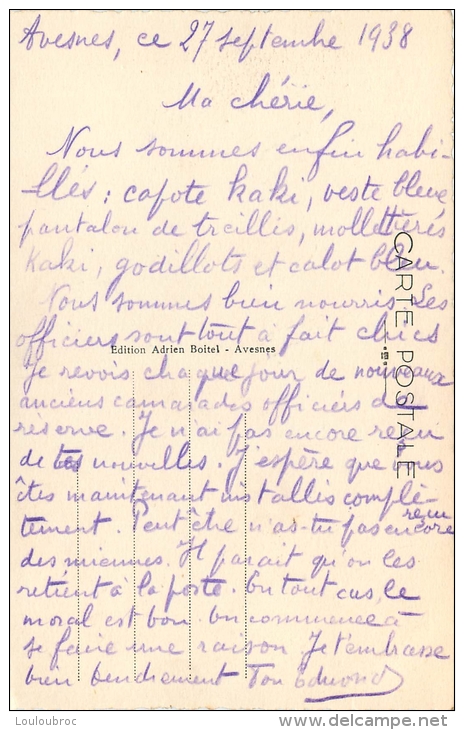 Avesnes, ce 27 septembre 1938
Ma chérie,
Nous sommes enfin habi-
llés : capote kaki, veste bleue
pantalon de treillis, molletières
kaki, godillots et calot bleu.
Nous sommes bien nourris. Les
officiers sont tout à fait chics
Edition Adrien Boitel - Avesnes
Je revois chaque jour de nouveaux
anciens camarades officiers de
réserve. Je n'ai pas encore reçu
de tes nouvelles. J'espère que vous
êtes maintenant installés complè-
tement. Peut être n'as-tu pas encore reçu
des miennes. Il parait qu'on les
retient à la poste. En tout cas, le
moral est bon. On commence à
se faire une raison Je t'embrasse
bien tendrement Ton Edmond
CARTE POSTALE
Louloubroc
delcampe.net